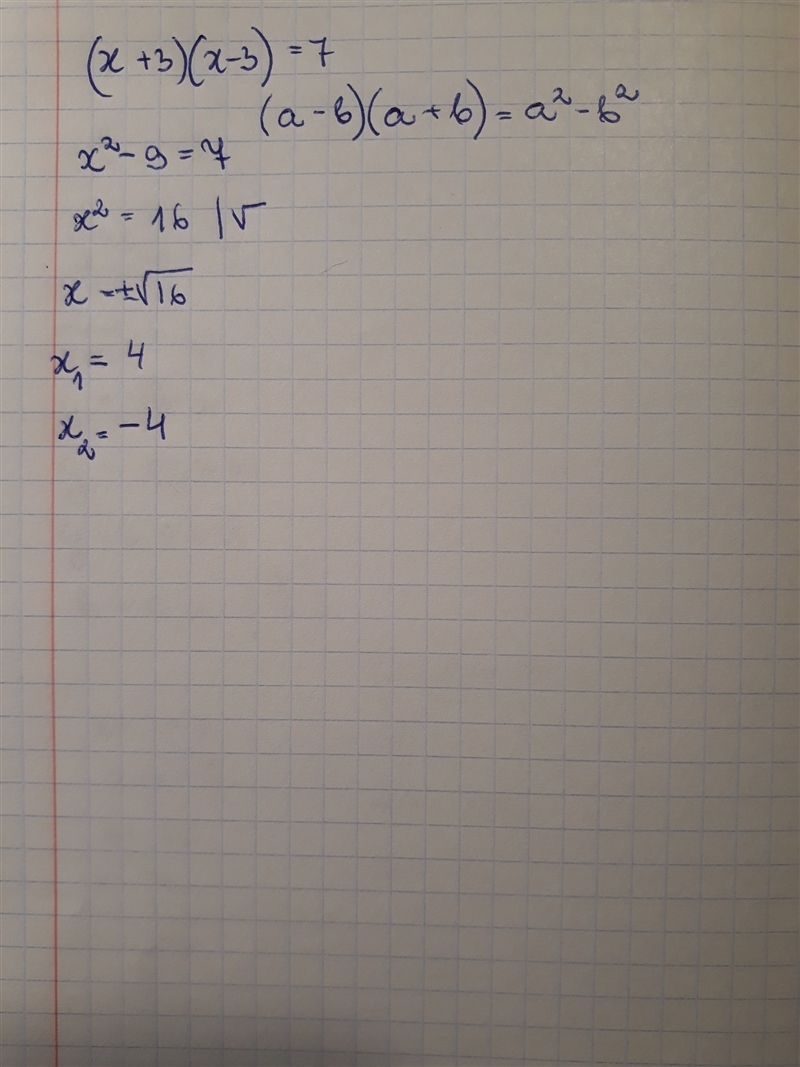 (x+3)(x-3) = 7
(a-b)(a+b) = a²-b²
x²-9 = 7
x² = 16 |√
x = ±√16
x₁ = 4
x₂ = -4